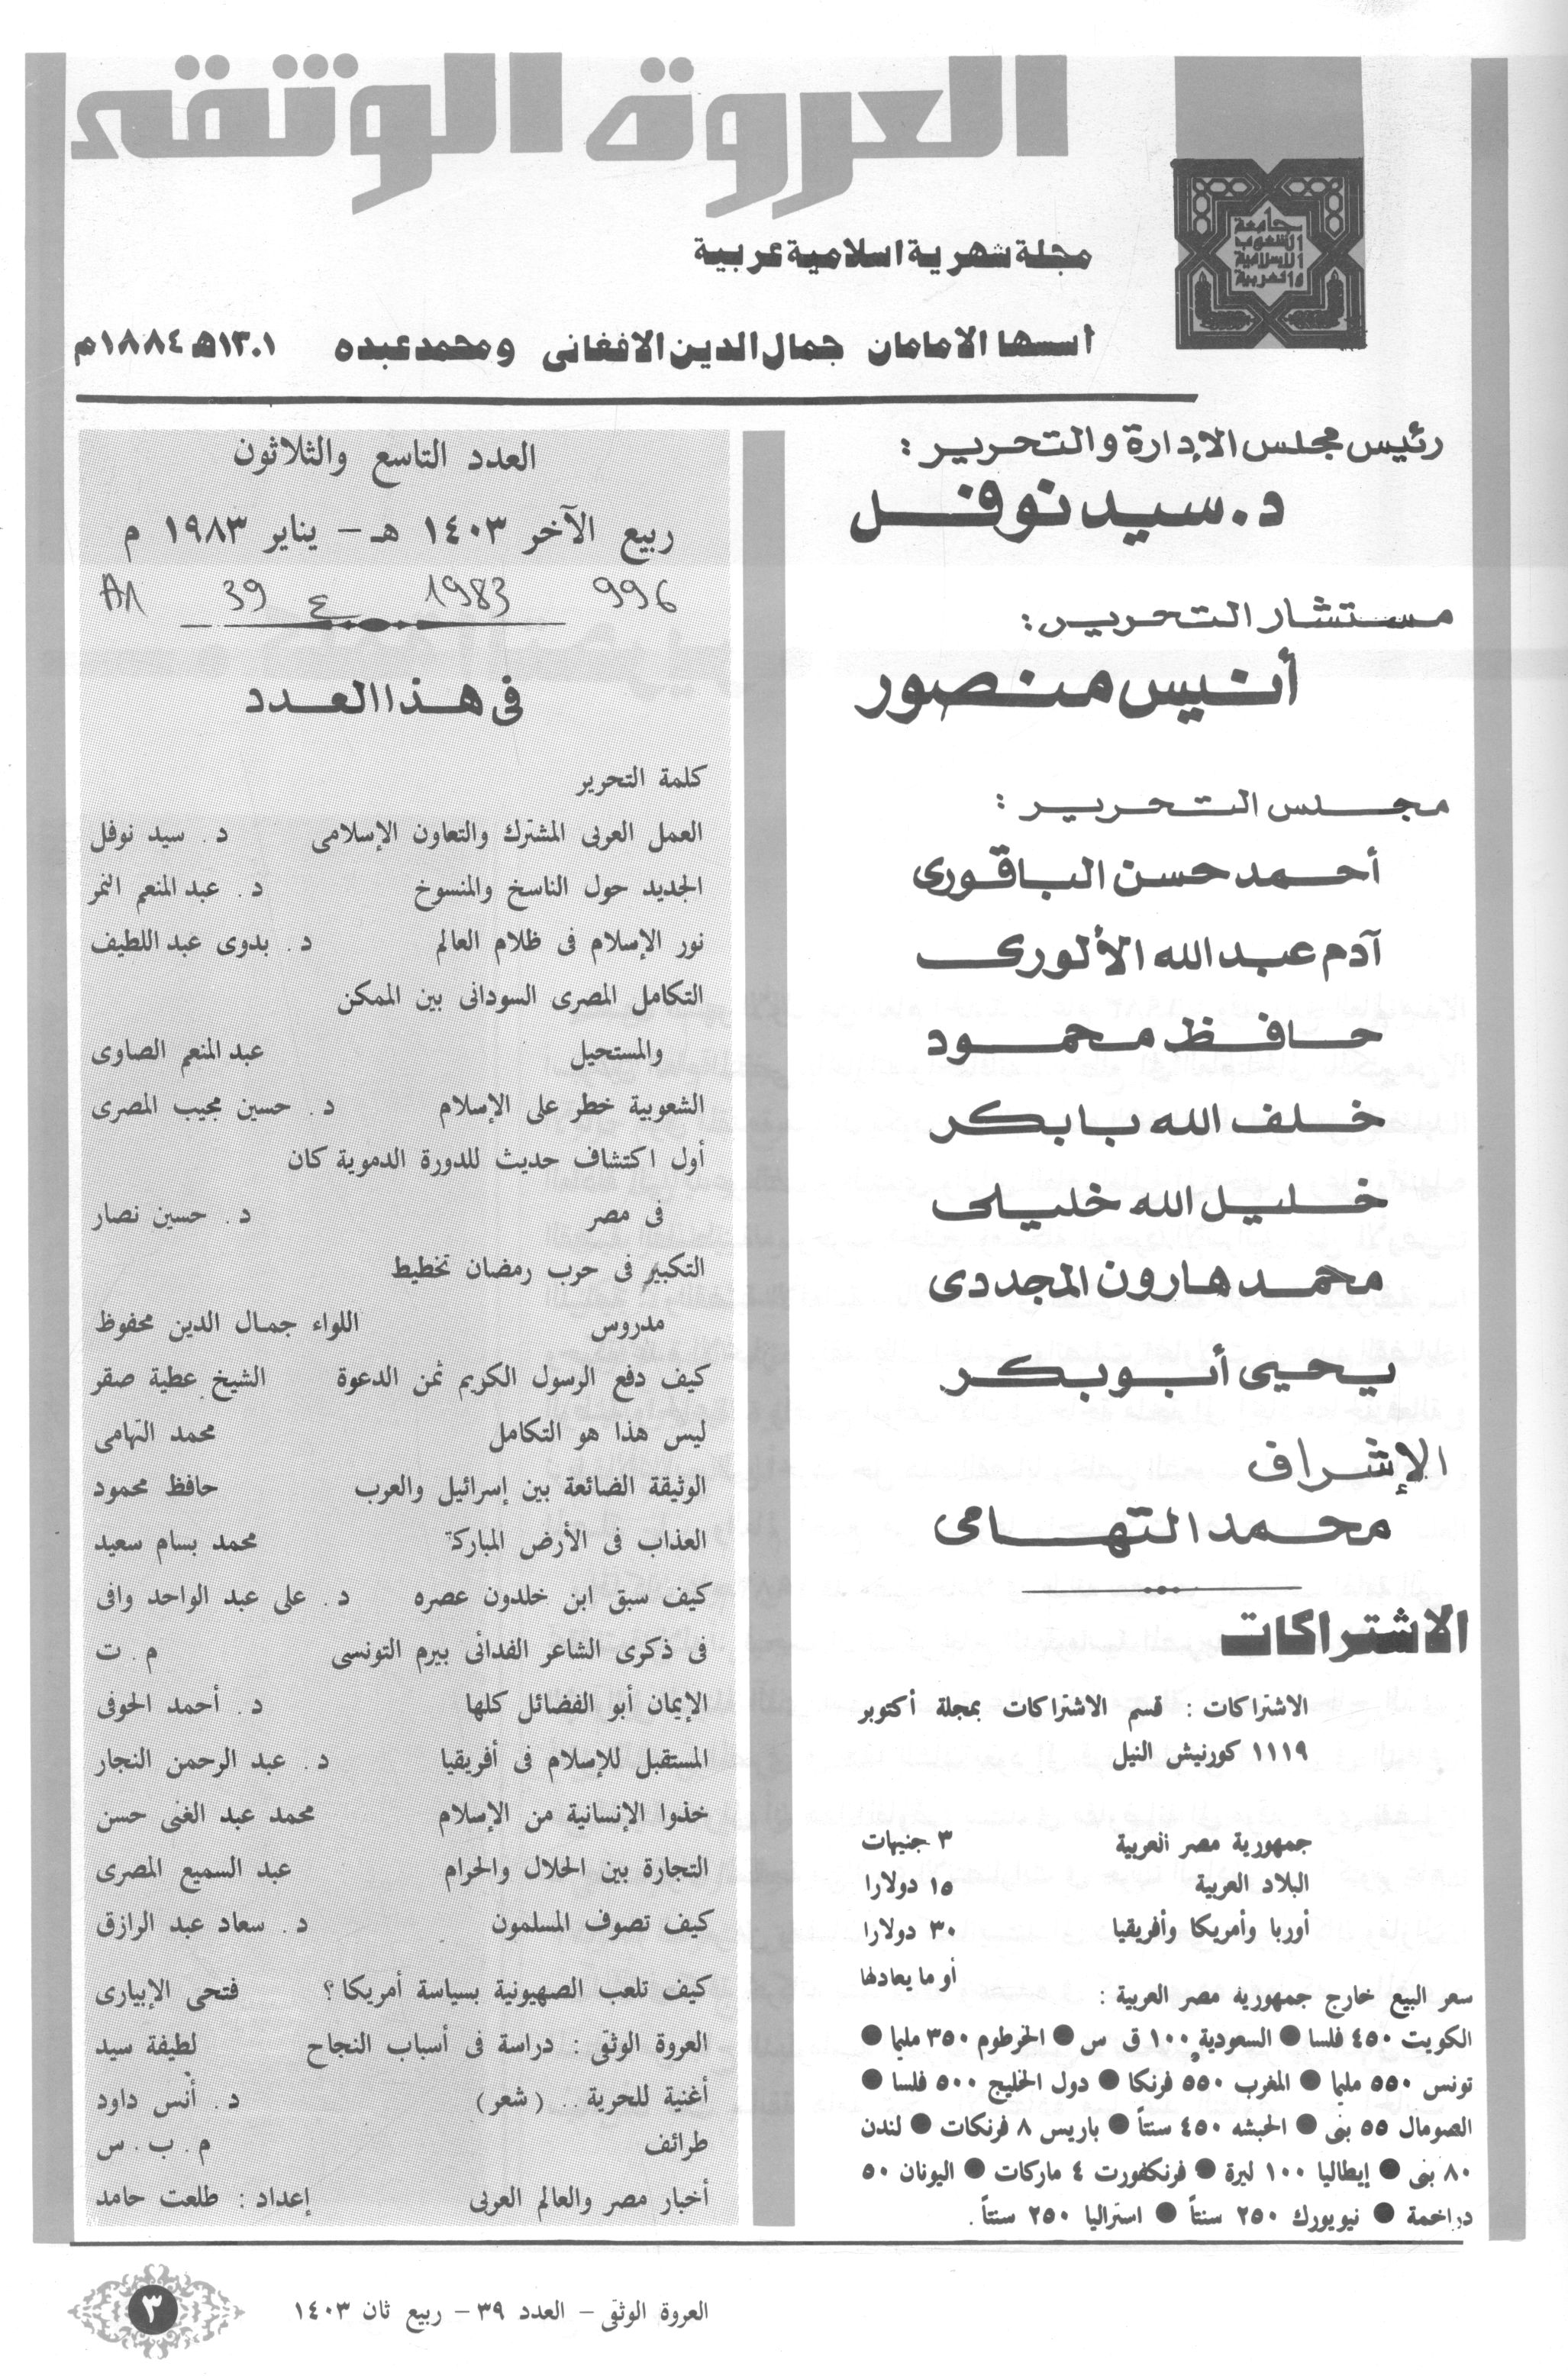 العروة الوثقى
جامعة
الشعوب
الإسلامية
والعربية
مجلة شهرية اسلامية عربية
أسسها الامامان جمال الدين الافغانى ومحمد عبده ١٣٠١هـ ١٨٨٤م
رئيس مجلس الإدارة والتحرير :
د. سيد نوفل
مستشار التحرير :
أنيس منصور
مجلس التحرير :
أحمد حسن الباقورى
آدم عبد الله الألورى
حافظ محمود
خلف الله بابكر
خليل الله خليلى
محمد هارون المجددى
يحيى أبو بكر
الإشراف
محمد التهامى
الاشتراكات
الاشتراكات : قسم الاشتراكات بمجلة أكتوبر
١١١٩ كورنيش النيل
جمهورية مصر العربية ٣ جنيهات
البلاد العربية ١٥ دولارا
أوربا وأمريكا وأفريقيا ٣٠ دولارا
أو ما يعادلها
سعر البيع خارج جمهورية مصر العربية :
الكويت ٤٥٠ فلسا ● السعودية ١٠٠ ق س ● الخرطوم ٣٥٠ مليما ●
تونس ٥٥٠ مليما ● المغرب ٥٥٠ فرنكا ● دول الخليج ٥٠٠ فلسا ●
الصومال ٥٥ بنى ● الحبشه ٤٥٠ سنتاً ● باريس ٨ فرنكات ● لندن
٨٠ بنى ● إيطاليا ١٠٠ ليرة ● فرنكفورت ٤ ماركات ● اليونان ٥٠
دراخمة ● نيويورك ٢٥٠ سنتاً ● استراليا ٢٥٠ سنتاً .
العدد التاسع والثلاثون
ربيع الآخر ١٤٠٣ هـ – يناير ١٩٨٣ م
A1 39 ع 1983 996
فى هذا العدد
كلمة التحرير
العمل العربى المشترك والتعاون الإسلامى د . سيد نوفل
الجديد حول الناسخ والمنسوخ د . عبد المنعم النمر
نور الإسلام فى ظلام العالم د . بدوى عبد اللطيف
التكامل المصرى السودانى بين الممكن
والمستحيل عبد المنعم الصاوى
الشعوبية خطر على الإسلام د . حسين مجيب المصرى
أول اكتشاف حديث للدورة الدموية كان
فى مصر د . حسين نصار
التكبير فى حرب رمضان تخطيط
مدروس اللواء جمال الدين محفوظ
كيف دفع الرسول الكريم ثمن الدعوة الشيخ عطية صقر
ليس هذا هو التكامل محمد التهامى
الوثيقة الضائعة بين إسرائيل والعرب حافظ محمود
العذاب فى الأرض المباركة محمد بسام سعيد
كيف سبق ابن خلدون عصره د . على عبد الواحد وافى
فى ذكرى الشاعر الفدائى بيرم التونسى م . ت
الإيمان أبو الفضائل كلها د . أحمد الحوفى
المستقبل للإسلام فى أفريقيا د . عبد الرحمن النجار
خذوا الإنسانية من الإسلام محمد عبد الغنى حسن
التجارة بين الحلال والحرام عبد السميع المصرى
كيف تصوف المسلمون د . سعاد عبد الرازق
كيف تلعب الصهيونية بسياسة أمريكا ؟ فتحى الإبيارى
العروة الوثقى : دراسة فى أسباب النجاح لطيفة سيد
أغنية للحرية . . ( شعر ) د . أنس داود
طرائف م . ب . س
أخبار مصر والعالم العربى إعداد : طلعت حامد
العروة الوثقى – العدد ٣٩ – ربيع ثان ١٤٠٣
٣